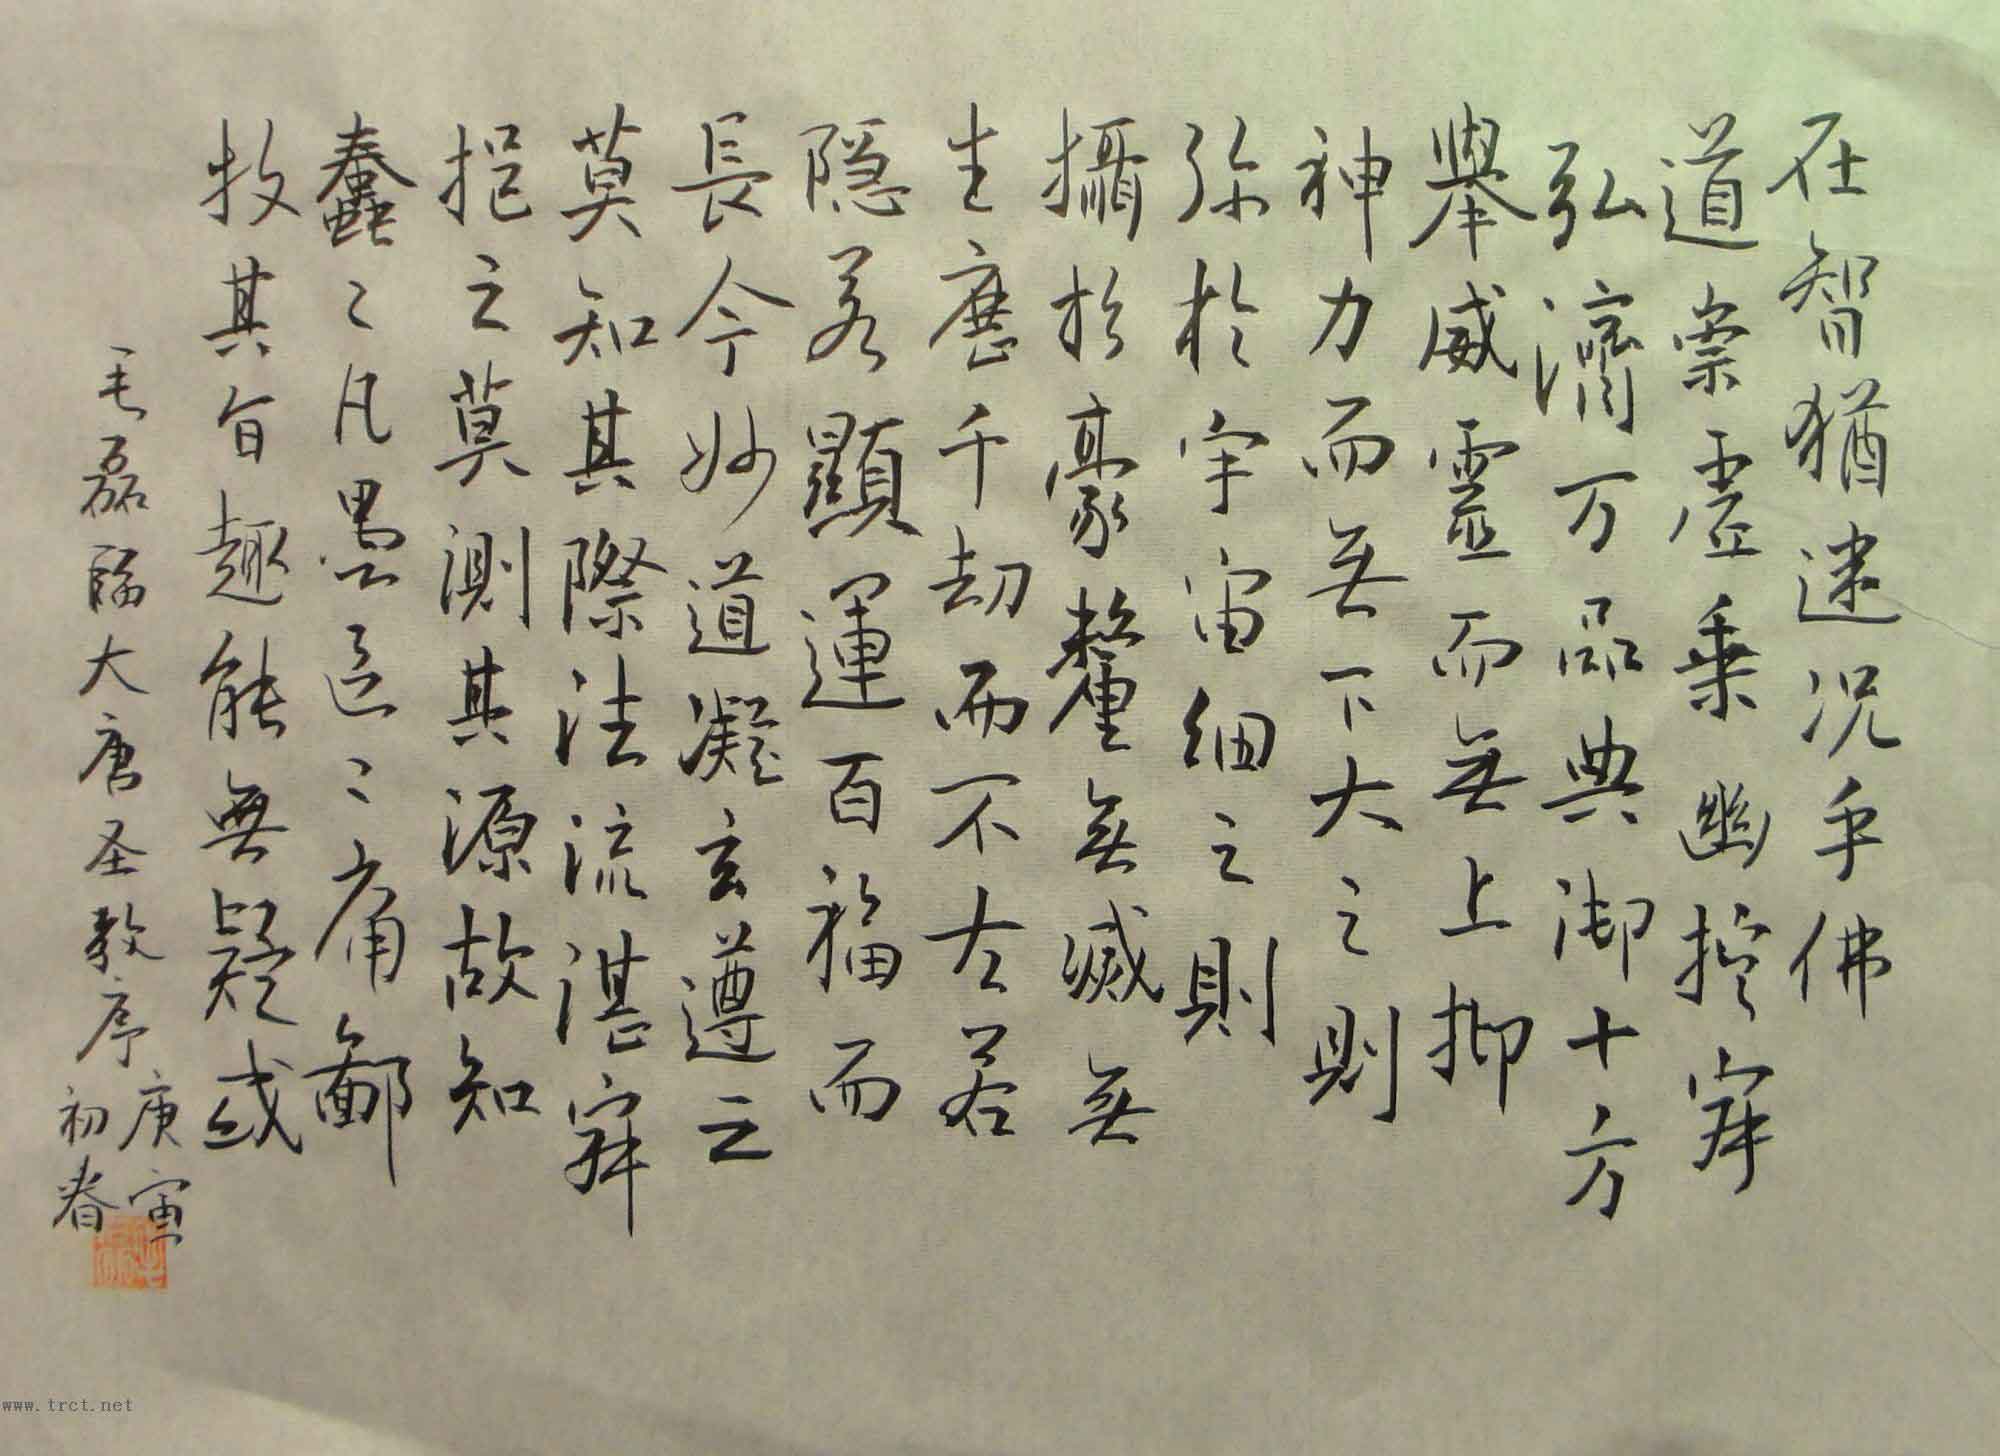 在智猶迷況乎佛
道崇虛乘幽控寂
弘濟万品典御十方
舉威靈而無上抑
神力而無下大之則
弥於宇宙細之則
攝於豪釐無滅無
生歷千劫而不古若
隱若顯運百福而
長今妙道凝玄遵之
莫知其際法流湛寂
挹之莫測其源故知
蠢〻凡愚區〻庸鄙
投其旨趣能無疑或
毛磊臨大唐圣教序
庚寅
初春
www.trct.net